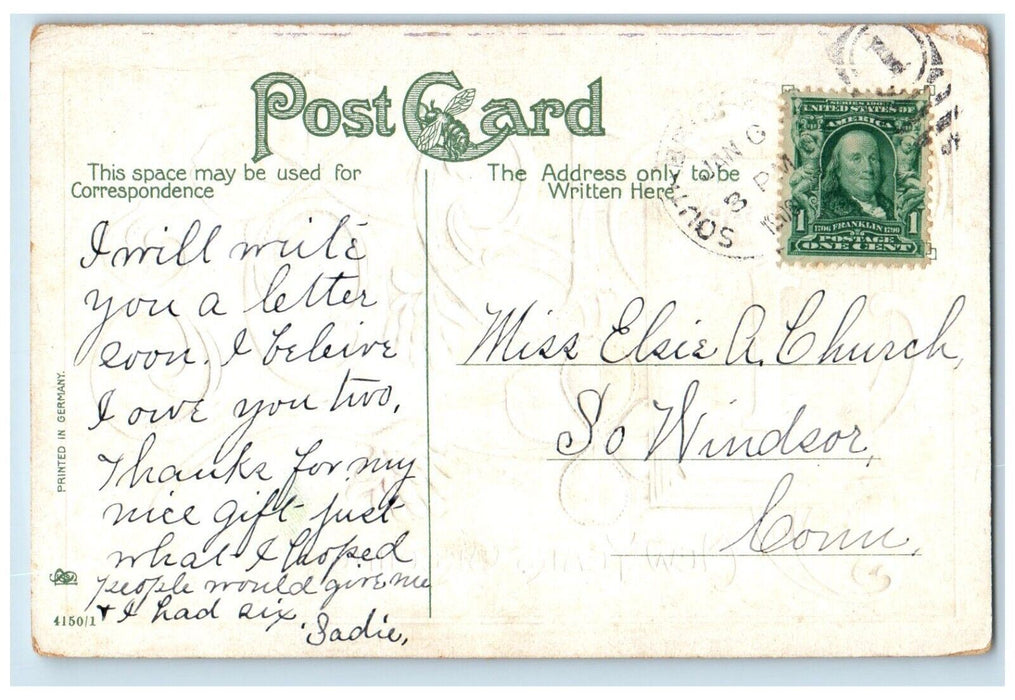 Post Card
This space may be used for
Correspondence
The Address only to be
Written Here
SOU
JAN 6
3 PM
1908
SERIES 1902
UNITED STATES OF
AMERICA
1
1
1706 FRANKLIN 1790
POSTAGE
ONE CENT
I will write
you a letter
soon. I beleive
I owe you two.
Thanks for my
nice gift just
what I hoped
people would give me
& I had six.
Sadie,
Miss Elsie A. Church,
So Windsor,
Conn.
PRINTED IN GERMANY.
4150/1